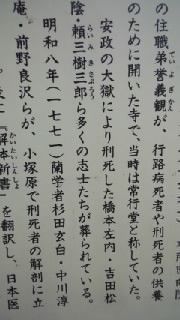 の住職弟誉義観が、行路病死者や刑死者の供養
ていよぎかん
のために開いた寺で、当時は常行堂と称していた。
安政の大獄により刑死した橋本左内・吉田松
陰・頼三樹三郎ら多くの志士たちが葬られている。
らいみきさぶろう
明和八年(一七七一)蘭学者杉田玄白・中川淳
庵・前野良沢らが、小塚原で刑死者の解剖に立
『解体新書』を翻訳し、日本医
かいたいしんしょ